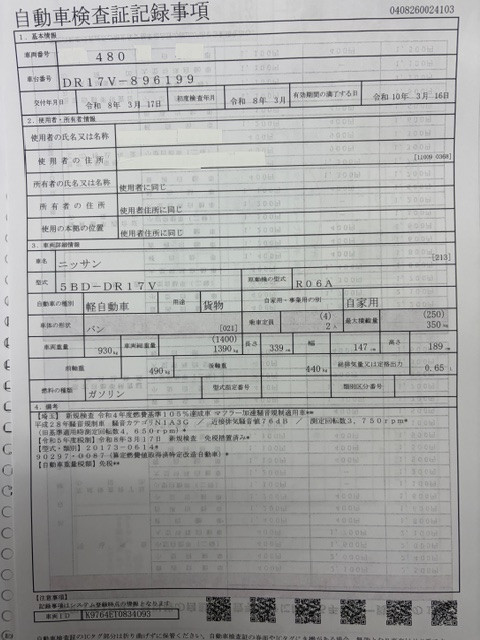 自動車検査証記録事項
0408260024103
1. 基本情報
車両番号 480
車台番号 DR17V-896199
交付年月日 令和 8年 3月 17日 初度検査年月 令和 8年 3月 有効期間の満了する日 令和 10年 3月 16日
2. 使用者・所有者情報
使用者の氏名又は名称
使用者の住所 [11009 0368]
所有者の氏名又は名称 使用者に同じ
所有者の住所 使用者住所に同じ
使用の本拠の位置 使用者住所に同じ
3. 車両詳細情報
車名 ニッサン [213]
型式 5BD-DR17V 原動機の型式 R06A
自動車の種別 軽自動車 用途 貨物 自家用・事業用の別 自家用
車体の形状 バン [021] 乗車定員 (4) 2人 最大積載量 (250) 350kg
車両重量 930kg 車両総重量 (1400) 1390kg 長さ 339cm 幅 147cm 高さ 189cm
前軸重 490kg 後軸重 440kg 総排気量又は定格出力 0.65
燃料の種類 ガソリン 型式指定番号 類別区分番号
4. 備考
【埼玉】 新規検査 令和4年度燃費基準105%達成車 マフラー加速騒音規制適用車**
平成28年騒音規制車 騒音カテゴリN1A3G / 近接排気騒音値76dB / 測定回転数3,750rpm*
(※基準適用時測定回転数4,650rpm)**
【令和5年度税制】令和8年3月17日 新規検査 免税措置済み**
【型式・類別】20173-0614*
90297-0087(算定燃費値取得済特定改造自動車)**
【自動車重量税】免税**
【注意事項】
記録事項はシステム登録時点の情報となります。
車両ID K9764E10834093